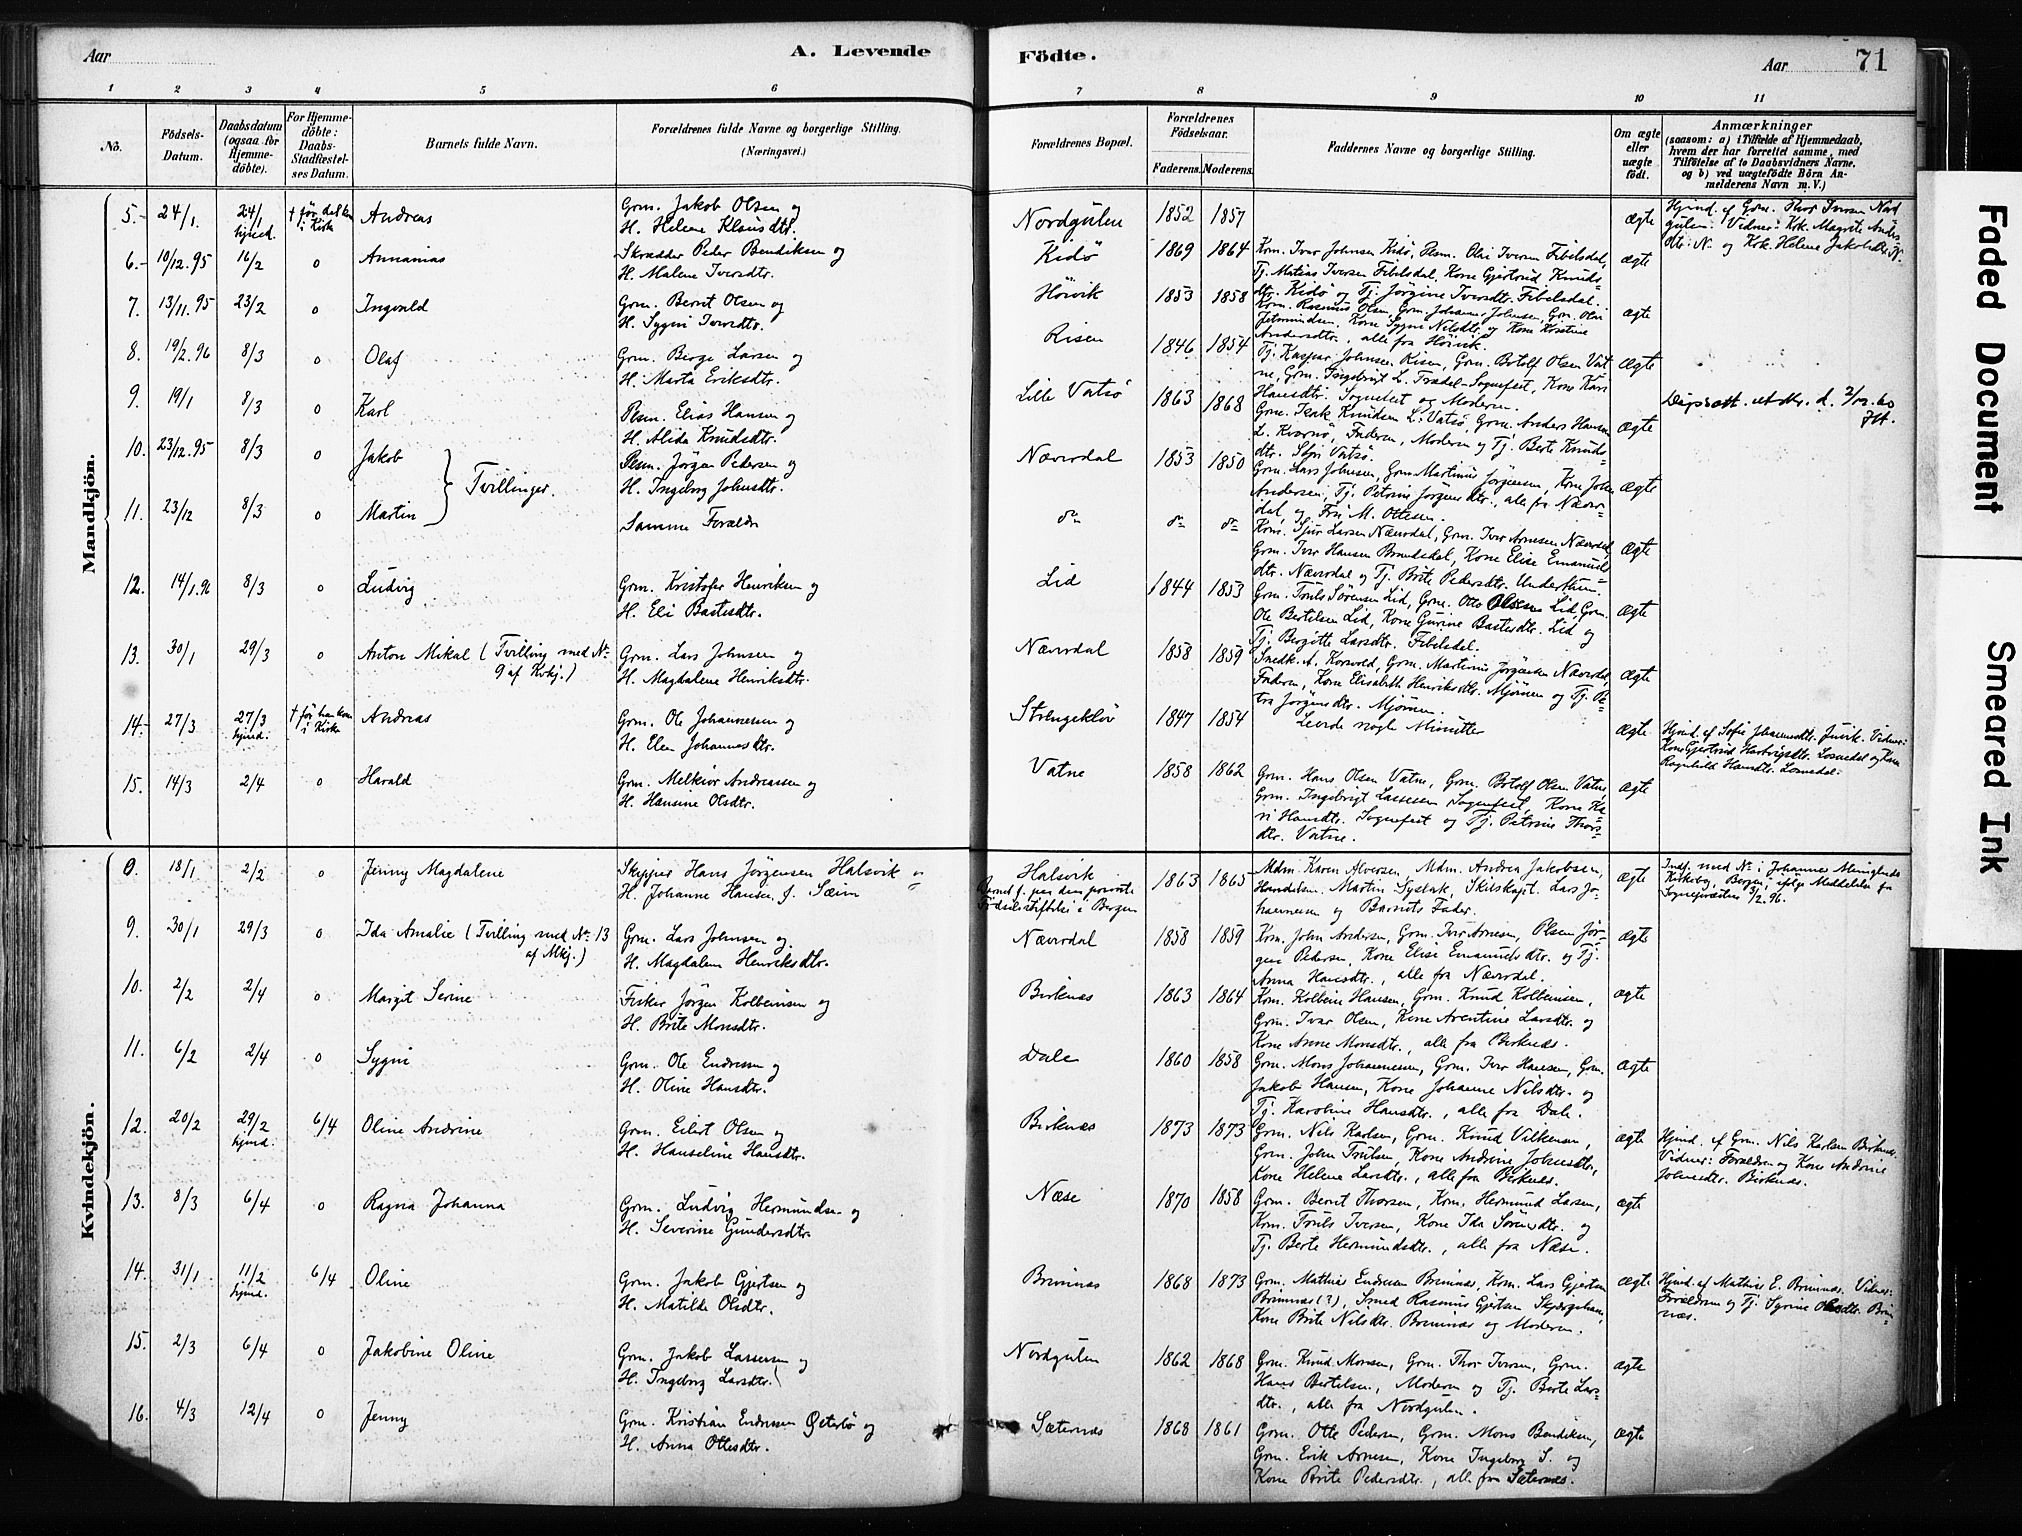 Aar
A. Levende
Födte.
Aar
71
1 2 3 4 5 6 7 8 9 10 11
Nô.
Födsels-
Datum.
Daabsdatum
(ogsaa for
Hjemme-
döbte).
For Hjemme-
döbte:
Daabs-
Stadfæstel-
ses Datum.
Barnets fulde Navn.
Forældrenes fulde Navne og borgerlige Stilling.
(Næringsvei.)
Forældrenes Bopæl.
Forældrenes
Födselsaar.
Faderens. Moderens.
Faddernes Navne og borgerlige Stilling.
Om ægte
eller
uægte
födt.
Anmærkninger
(saasom: a) i Tilfælde af Hjemmedaab,
hvem der har forrettet samme, med
Tilföielse af to Daabsvidners Navne,
og b) ved uægtefödte Börn An-
melderens Navn m. V.)
Mandkjön.
5. 24/1. 24/1 hjmd. † før det kom i Kirke Andreas
Grm. Jakob Olsen og
H. Helene Klausdtr.
Nordgulen 1852 1857 ægte
Hjmd. af Grm. Thor Iversen Nord
gulen. Vidner: Kok. Magrete Anders
dtr. N. og Kok. Helene Jakobdtr. N.
6. 10/12.95 16/2 o Annanias
Skrædder Peder Bendiksen og
H. Malene Iversdtr.
Kidö 1869 1864 ægte
Krm. Ivar Johnsen Kidö, Plsm. Olai Iversen Fibelsdal,
Tj. Matias Iversen Fibelsdal, Kone Gjertrud Knuds-
dtr. Kidö og Tj. Jörgine Iversdtr. Fibelsdal.
7. 13/11.95 23/2 o Ingvald
Grm. Bernt Olsen og
H. Sygni Iversdtr.
Höivik 1853 1858 ægte
Krm. Rasmus Olsen, Grm. Johannes Johnsen, Grm. Olai
Jetmundsen, Kone Sygni Nilsdtr. og Kone Kristine
Andersdtr., alle fra Höivik.
8. 19/2.96 8/3 o Olaf
Grm. Berge Larsen og
H. Marta Eriksdtr.
Risen 1846 1854 ægte
Tj. Kaspar Johnsen Risen, Grm. Botolf Olsen Vat
ne, Grm. Ingebrigt L. Trædal-Sognefest, Kone Kari
Hansdtr. Sognefest og Moderen.
9. 19/1 8/3 o Karl
Plsm. Elias Hansen og
H. Alida Knudsdtr.
Lille Vatsö 1863 1868 ægte
Grm. Isak Knudsen L. Vatsö, Grm. Anders Hansen
L. Kvernö, Faderen, Moderen og Tj. Berte Knuds-
dtr. St. Vatsö.
Dåpsatt. utstdr. d. 2/12.60
10. 23/12.95 8/3 o Jakob
Plsm. Jörgen Pedersen og
H. Ingeborg Johnsdtr.
Tvillinger.
Nævrdal 1853 1850 ægte
Grm. Lars Johnsen, Grm. Martinus Jörgensen, Krm. John
Andersen, Tj. Petrine Jörgensdtr., alle fra Nævr-
dal og Frú M. Ottesen.
11. 23/12 8/3 o Martin
Samme Forældre
do do do ægte
Krm. Sjur Larsen Nævrdal, Grm. Ivar Arnesen Nævrdal,
Grm. Ivar Hansen Brandsdal, Kone Elise Emanuels
dtr. Nævrdal og Tj. Brite Pedersdtr. Underthun.
12. 14/1.96 8/3 o Ludvig
Grm. Kristofer Henriksen og
H. Eli Bastesdtr.
Lid 1844 1853 ægte
Grm. Truls Sörensen Lid, Grm. Otto Olsen Lid, Grm.
Ole Bertelsen Lid, Kone Gurine Bastesdtr. Lid og
Tj. Bergitte Larsdtr. Fibelsdal.
13. 30/1 29/3 o Anton Mikal (Tvilling med No
9 af Kvkj.)
Grm. Lars Johnsen og
H. Magdalene Henriksdtr.
Nævrdal 1858 1859 ægte
Snedk. A. Korsvold, Grm. Martinus Jörgensen Nævrdal,
Faderen, Kone Elisabeth Henriksdtr. Mjömen og Tj. Pe-
tra Jörgensdtr. Mjömen.
14. 27/3 27/3 hjmd. † før han kom i Kirke Andreas
Grm. Ole Johannessen og
H. Elen Johannesdtr.
Strengeklöv 1847 1854 ægte
Levde nogle Minutter
Hjmd. af Sofie Johannesdtr. Juvik. Vidner:
Kone Gjertrud Hartvigsdtr. Losnedal og Kone
Ragnhild Hansdtr. Losnedal.
15. 14/3 2/4 o Harald
Grm. Melkior Andreassen og
H. Hansine Olsdtr.
Vatne 1858 1862 ægte
Grm. Hans Olsen Vatne, Grm. Botolf Olsen Vatne,
Grm. Ingebrigt Lassesen Sognefest, Kone Ka-
ri Hansdtr. Sognefest og Tj. Petrine Thors-
dtr. Vatne.
Kvindekjön.
0. 18/1 2/2 o Jenny Magdalene
Skipper Hans Jörgensen Halsvik og
H. Johanne Hansen f. Sæim
Halsvik
Barnet f. paa den private
Fødselsstiftelse i Bergen
1863 1865 ægte
Mdm. Karen Alversen, Mdm. Andrea Jakobsen,
Handelsm. Martin Systak, Skibskapt. Lars Jo-
hannesen og Barnets Fader.
Indf. med No i Johannes Menigheds
Kirkebog, Bergen, ifølge Meddelelse fra
Sognepræsten 5/2.96.
9. 30/1 29/3 o Ida Amalie (Tvilling med No 13
af Mkj.)
Grm. Lars Johnsen og
H. Magdalene Henriksdtr.
Nævrdal 1858 1859 ægte
Krm. John Andersen, Grm. Ivar Arnesen, Plsm. Jör-
gen Pedersen, Kone Elise Emanuelsdtr. og Tj.
Anna Hansdtr., alle fra Nævrdal.
10. 2/2 2/4 o Margit Serine
Fisker Jörgen Kolbeinsen og
H. Brite Monsdtr.
Birknæs 1863 1864 ægte
Krm. Kolbein Hansen, Grm. Knud Kolbeinsen,
Grm. Ivar Olsen, Kone Aventine Larsdtr. og
Kone Anne Monsdtr., alle fra Birknæs.
11. 6/2 2/4 o Sygni
Grm. Ole Endresen og
H. Oline Hansdtr.
Dale 1860 1858 ægte
Grm. Mons Johannesen, Grm. Ivar Hansen, Grm.
Jakob Hansen, Kone Johanne Nilsdtr. og
Tj. Karoline Hansdtr., alle fra Dale.
12. 20/2 29/2 hjmd. 6/4 Oline Andrine
Grm. Eilert Olsen og
H. Hanseline Hansdtr.
Birknæs 1873 1873 ægte
Grm. Nils Karlsen, Grm. Knud Vilkensen,
Grm. John Trulsen, Kone Andrine Johnsdtr,
Kone Helene Larsdtr., alle fra Birknæs.
Hjmd. af Grm. Nils Karlsen Birknæs.
Vidner: Forældren og Kone Andrine
Johnsdtr. Birknæs.
13. 8/3 6/4 o Ragna Johanna
Grm. Ludvig Hermundsen og
H. Severine Gundersdtr.
Næse 1870 1858 ægte
Grm. Bernt Thorsen, Krm. Hermund Larsen,
Krm. Truls Iversen, Kone Ida Sörensdtr. og
Tj. Berte Hermundsdtr., alle fra Næse.
14. 31/1 11/2 hjmd. 6/4 Oline
Grm. Jakob Gjertsen og
H. Matilde Olsdtr.
Brimnæs 1868 1873 ægte
Grm. Mathias Endresen Brimnæs, Krm. Lars Gjertsen
Brimnæs(?), Smed Rasmus Gjertsen Skjærgehavn,
Kone Brite Nilsdtr. Brimnæs og Moderen.
Hjmd. af Mathias E. Brimnæs. Vidner:
Forældren og Tj. Syrine Olsdtr. Brim-
næs.
15. 2/3 6/4 o Jakobine Oline
Grm. Jakob Lassesen og
H. Ingeborg Larsdtr.
Nordgulen 1862 1868 ægte
Grm. Knud Monsen, Grm. Thor Iversen, Grm.
Hans Bertelsen, Moderen og Tj. Berte Lars-
dtr., alle fra Nordgulen.
16. 4/3 12/4 o Jenny
Grm. Kristian Endresen Östebö og
H. Anna Ottesdtr.
Sæternæs 1868 1861 ægte
Grm. Otte Pedersen, Grm. Mons Bendiksen,
Grm. Erik Arnesen, Kone Ingeborg S. og
Kone Brite Pedersdtr., alle fra Sæternæs.
Faded Document
Smeared Ink